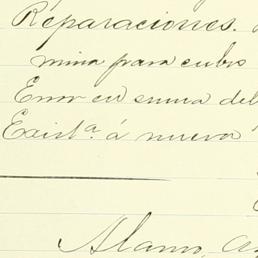 Reparaciones.
mina para cubo
Error en suma del
Exist.ª á nueva
Alamo,